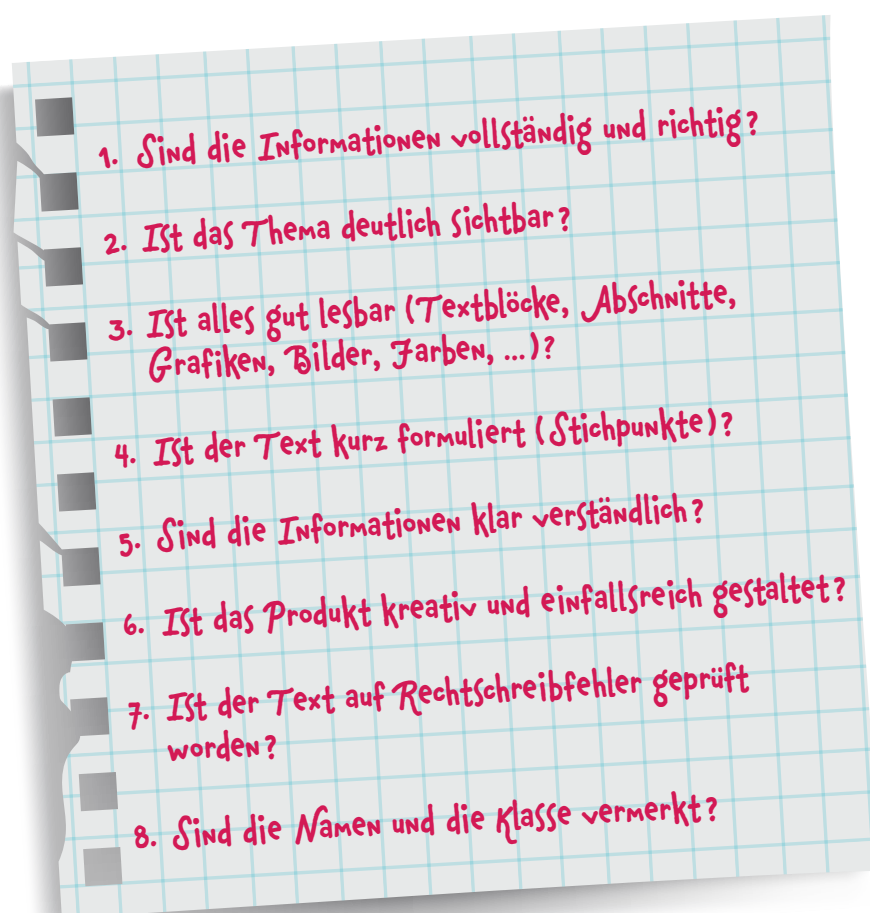 1. Sind die Informationen vollständig und richtig?
2. Ist das Thema deutlich sichtbar?
3. Ist alles gut lesbar (Textblöcke, Abschnitte,
Grafiken, Bilder, Farben, ...)?
4. Ist der Text kurz formuliert (Stichpunkte)?
5. Sind die Informationen klar verständlich?
6. Ist das Produkt kreativ und einfallsreich gestaltet?
7. Ist der Text auf Rechtschreibfehler geprüft
worden?
8. Sind die Namen und die Klasse vermerkt?